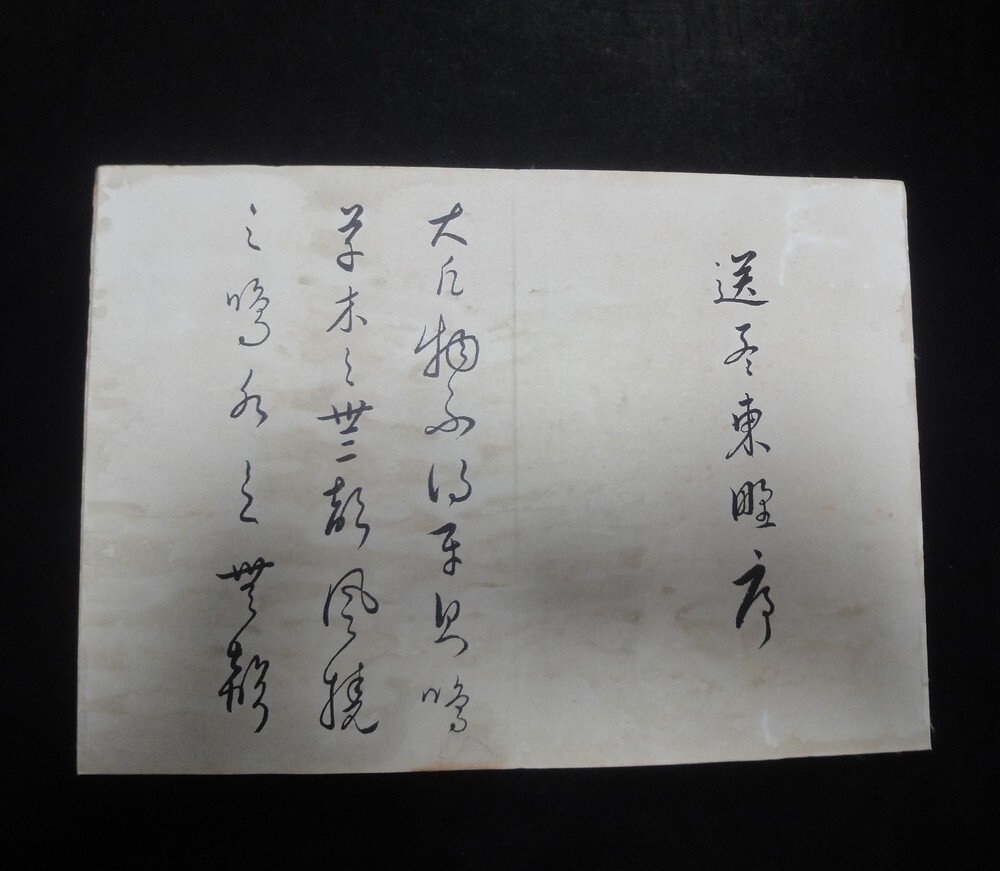 送孟東野序
大凡物不得平則鳴
草木之無聲風撓
之鳴水之無聲